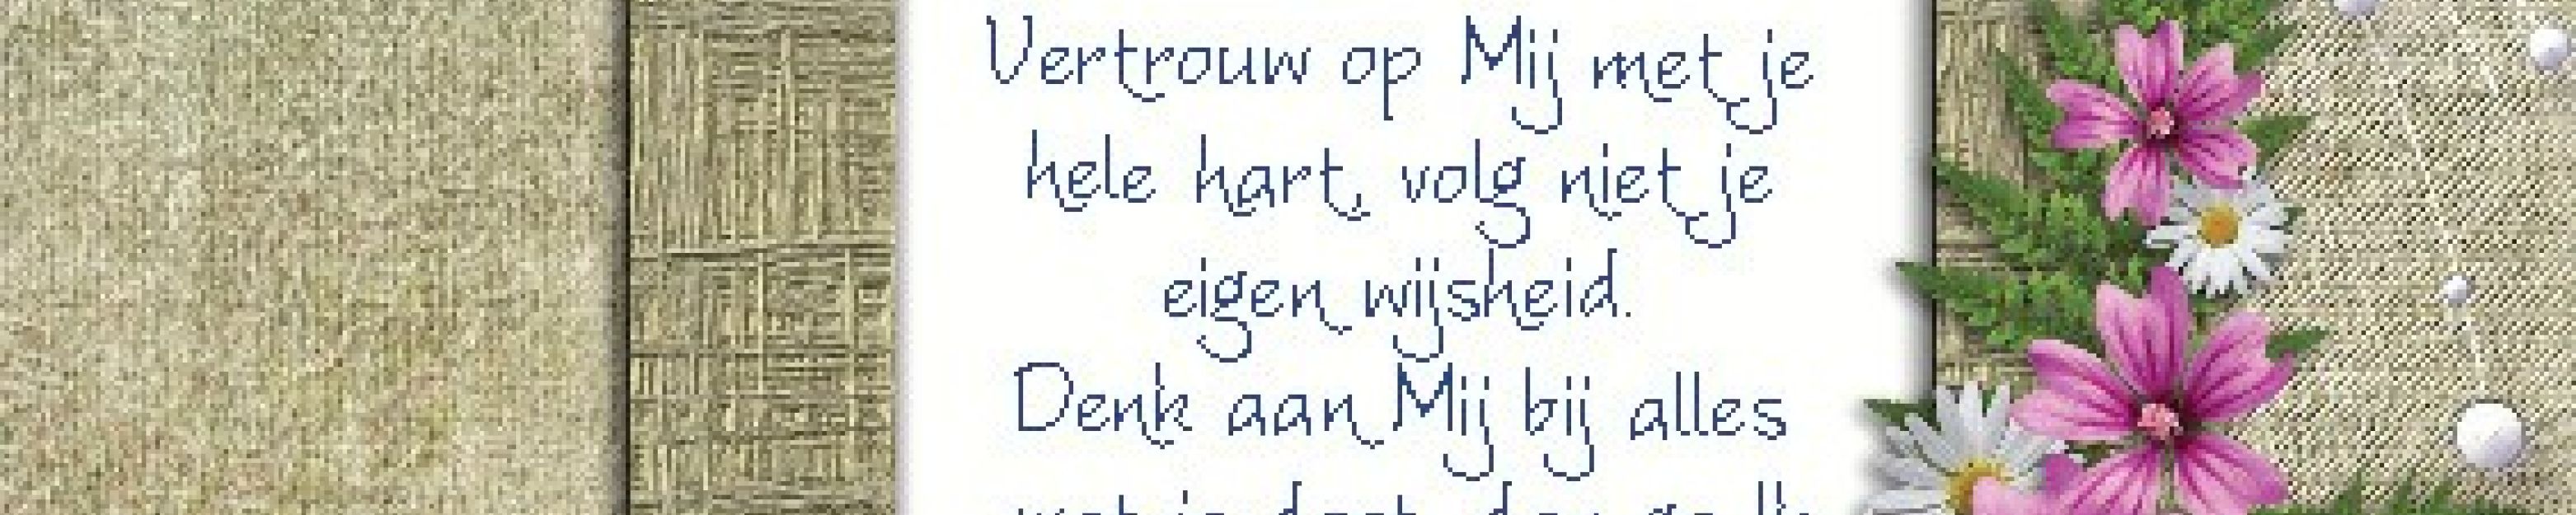 Vertrouw op Mij met je
hele hart, volg niet je
eigen wijsheid.
Denk aan Mij bij alles